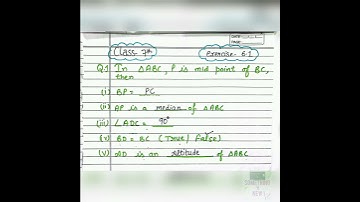 DATE
PAGE
CLASS 7th Exercise - 6.1
Q.1 In △ABC, P is mid point of BC,
then
(i) BP = PC
(ii) AP is a median of △ABC
(iii) ∠ADC = 90°
(iv) BD = BC (True / False)
(v) AD is an altitude of △ABC
SOMETHING
NEW!